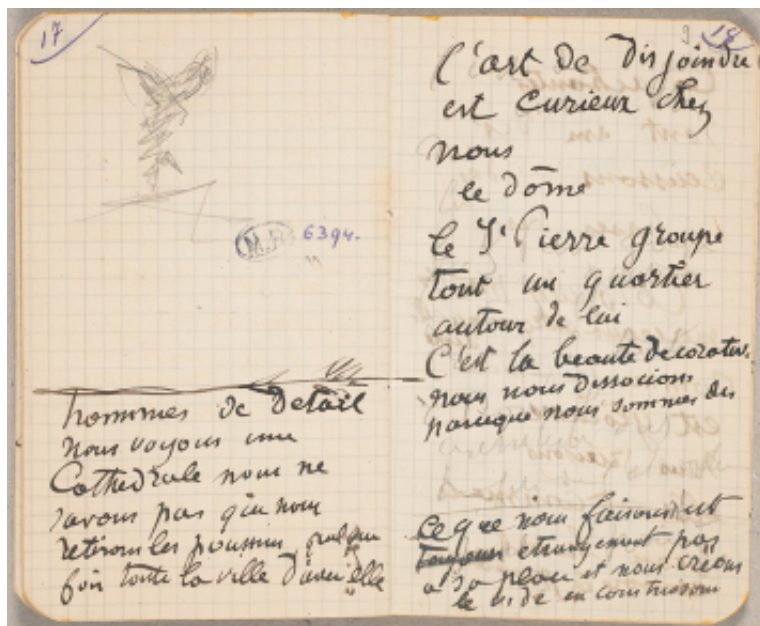 17
M.R
6394.
"
hommes de detail
nous voyons une
Cathedrale nous ne
savons pas que nous
retirons les poumons
fois toute la ville d'avec elle
18
l'art de disjoindre
est curieux chez
nous
le dôme
le St Pierre groupe
tout un quartier
autour de lui
C'est la beaute decorative.
nous nous dissocions
parceque nous sommes des
ce que nous faisons est
toujours etrangement pas
a sa place et nous créons
le vide en construisant